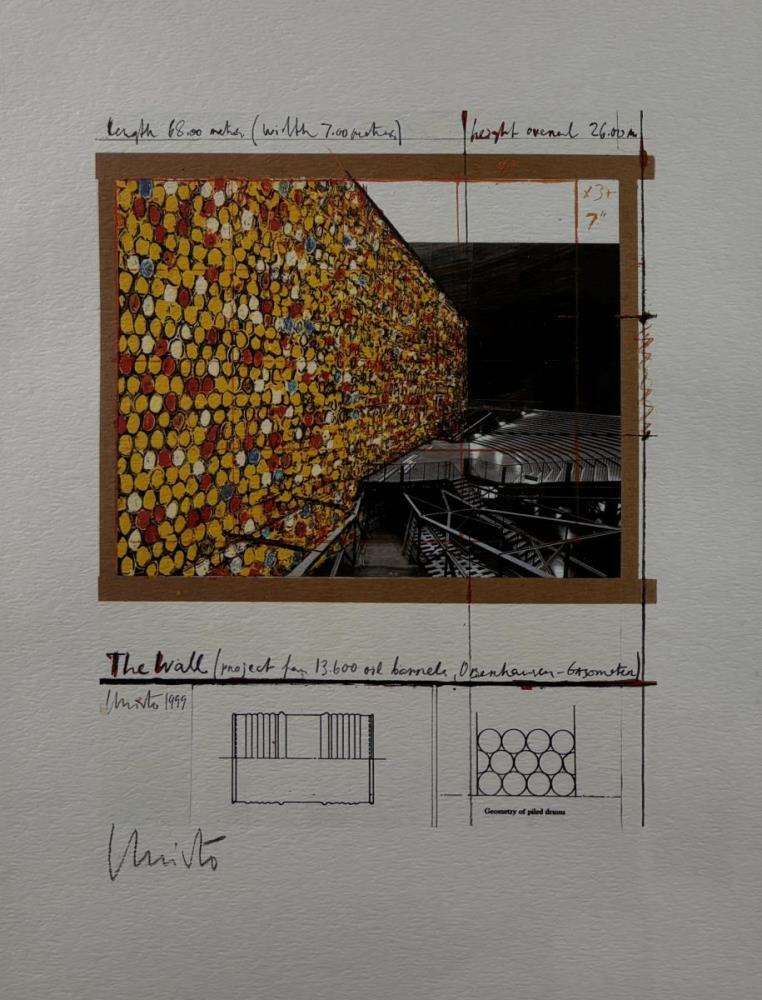 length 68.00 meters (width 7.00 meters) height overall 26.00 m
x 3+
7"
The Wall (project for 13.600 oil barrels, Oberhausen-Gasometer)
Christo 1999
Geometry of piled drums
Christo